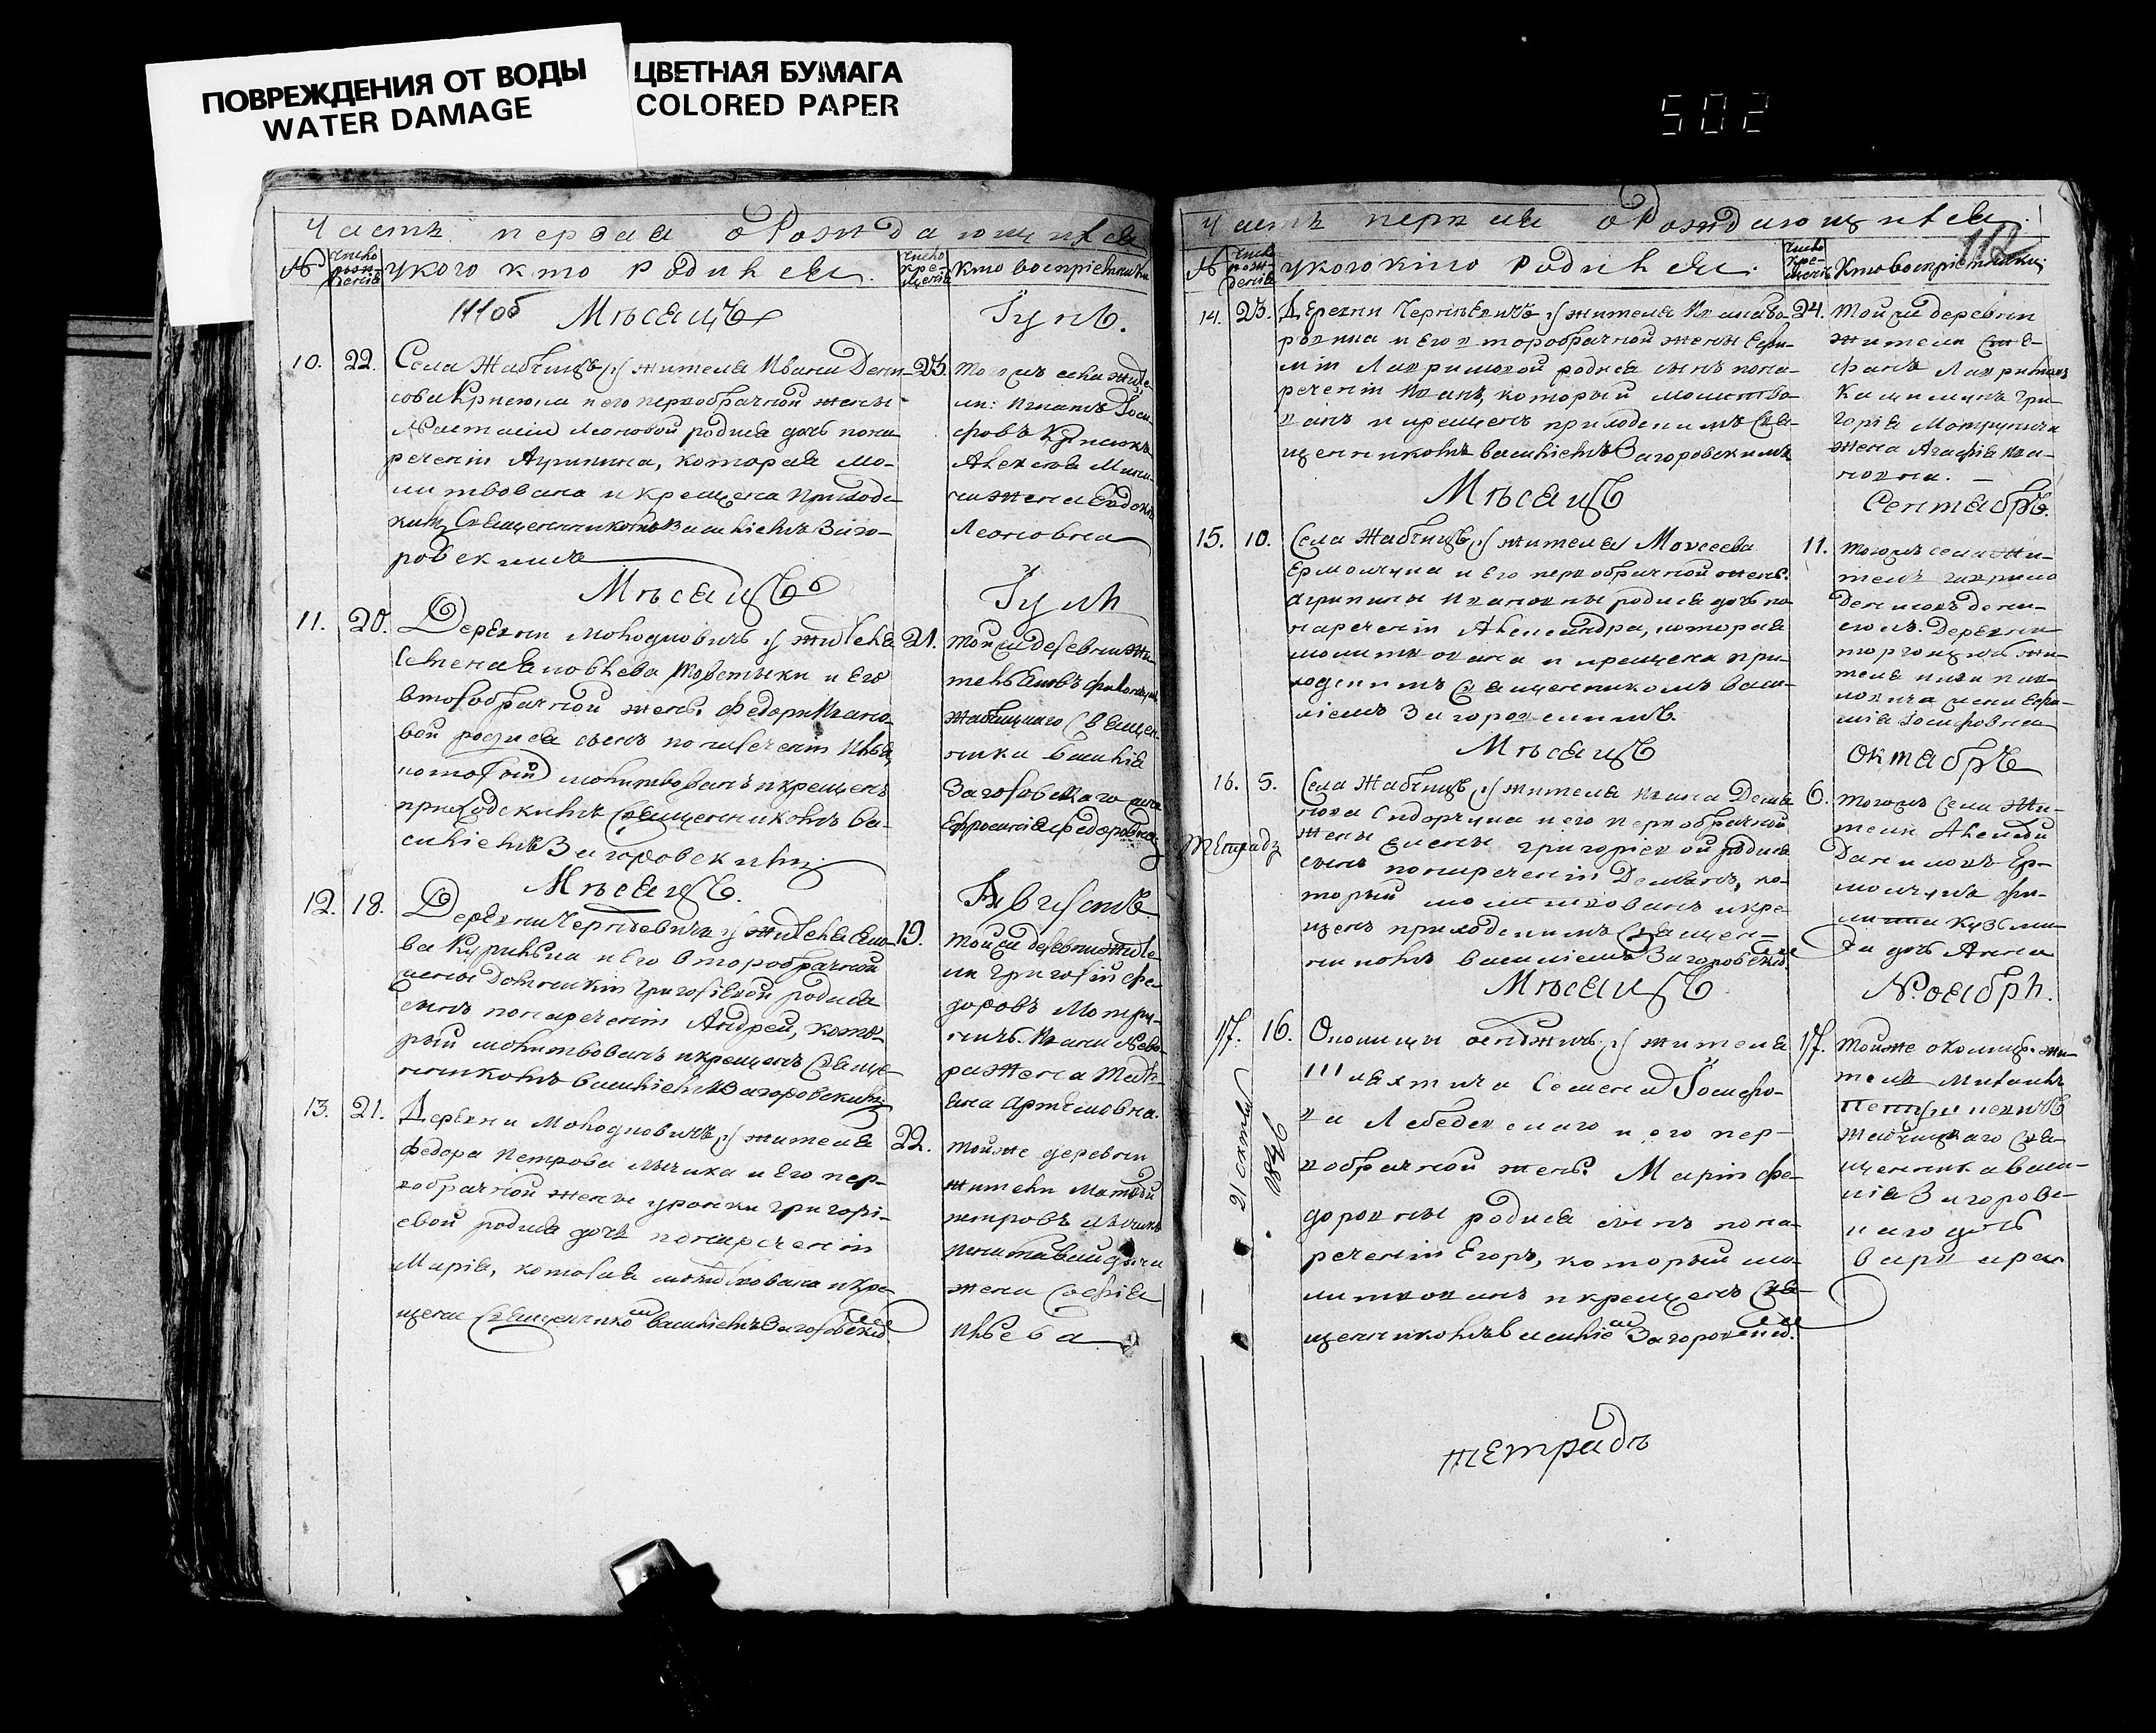 ПОВРЕЖДЕНИЯ ОТ ВОДЫ
WATER DAMAGE
ЦВЕТНАЯ БУМАГА
COLORED PAPER
502
Часть первая о Рождающихся
№
Число рожденія
у кого кто родился
Число крещенія
кто воспріемники
111об Мѣсяцъ
Іунь.
10. 22. Села Жабчицъ жителя Ивана Дени-
сова Крисюка и его первобрачной жены
Настасіи Леоновой родися дочь пона
реченіи Агрипина, которая мо-
литвована и крещена приходс
кимъ Священникомъ Василіемъ Заго-
ровскимъ
23. тогожъ села жите
ли: Игнатъ Іоси
фовъ Крисюкъ
Алексѣя
жена Евдокія
Леоновна
Мѣсяцъ
Іуль
11. 20. Деревни Молодковичъ жителя
Семена Яковлева и Его
второбрачной женѣ Федоры Ивано
вой родися сынъ по нареченіи Илья,
который молитвованъ и крещенъ
приходскимъ Священникомъ Ва-
силіемъ Загоровскимъ
21. той же деревни жи-
тель Яковъ
Жабчицкаго Священ-
ника Василія
Загоровскаго
Ефросинія Федоровна
Мѣсяцъ.
Августъ
12. 18. Деревни Чернѣевичъ жителя Яко-
ва Курильчика и Его второбрачной
жены Домникіи Григоріевой родися
сынъ по нареченіи Андрей, кото-
рый молитвованъ и крещенъ Свяще-
нникомъ Василіемъ Загоровскимъ
19. той же деревни жите
ли Григорій Фе-
доровъ Мотрун-
ичъ. Ивана
жена Татія-
ена Артемовна.
13. 21. Деревни Молодковичъ жителя
Федора Петрова и Его пер-
вобрачной жены Григорі-
евой родися дочь по нареченіи
Марія, которая молитвована и кре-
щена Священникомъ Василіемъ Загоровским.
22. той же деревни
жители Матвѣй
петровъ
жена Софія
Ильева
Часть первая о Рождающихся.
112
№
Число рожденія
у кого кто родился.
Число крещенія
Кто воспріемники
14. 23. Деревни Чернѣевичъ жителя Ивана
и Его второбрачной жены Ефи-
міи Лавриновой родися сынъ пона-
реченіи Иванъ, который молитво-
ванъ и крещенъ приходскимъ Свя-
щенникомъ Василіемъ Загоровскимъ
24. той же деревни
жители Сте-
фанъ Лавриновъ
Григорія Мотрунича
жена Агафія Ива-
новна.
Мѣсяцъ
Сентябрь.
15. 10. Села Жабчицъ жителя Моисеева
Ермолчука и Его первобрачной женѣ
Агрипины Ивановны родися дочь по
нареченіи Александра, которая
молитвована и крещена при-
ходскимъ Священникомъ Васи-
ліемъ Загоровскимъ.
11. тогожъ села жи-
тель Гаврило
Денисовъ
Деревни
жи-
теля
жена Ефи-
мія Іосифовна
Мѣсяцъ
Октябрь
16. 5. Села Жабчицъ жителя Ивана Демья
нова Сидорчука и его первобрачной
жены Елены Григоріевой родися
сынъ по нареченіи Демьянъ, ко-
торый молитвованъ и кре
щенъ приходскимъ Священ-
никомъ Василіемъ Загоровским
6. тогожъ Села жи-
тели Алексѣй
Даниловъ Ер-
молчукъ Фи-
липа Кузьми-
ча дочь Анна
тетрадь
Мѣсяцъ
Ноябрь.
17. 16. Околицы жителя
шляхтича Семена Іосифо-
ва Лебедевскаго и его пер-
вобрачной женѣ Маріи Фе-
доровны родися сынъ пона-
реченіи Егоръ, который мо-
литвованъ и крещенъ Свя-
щенникомъ Василіем Загоровским.
17. той же околицѣ жи-
тель Михаилъ
Жабчицкаго Свя-
щенника Васи-
лія Загоровс-
каго дочь
Варвара
21 октяб
1846
тетрадь